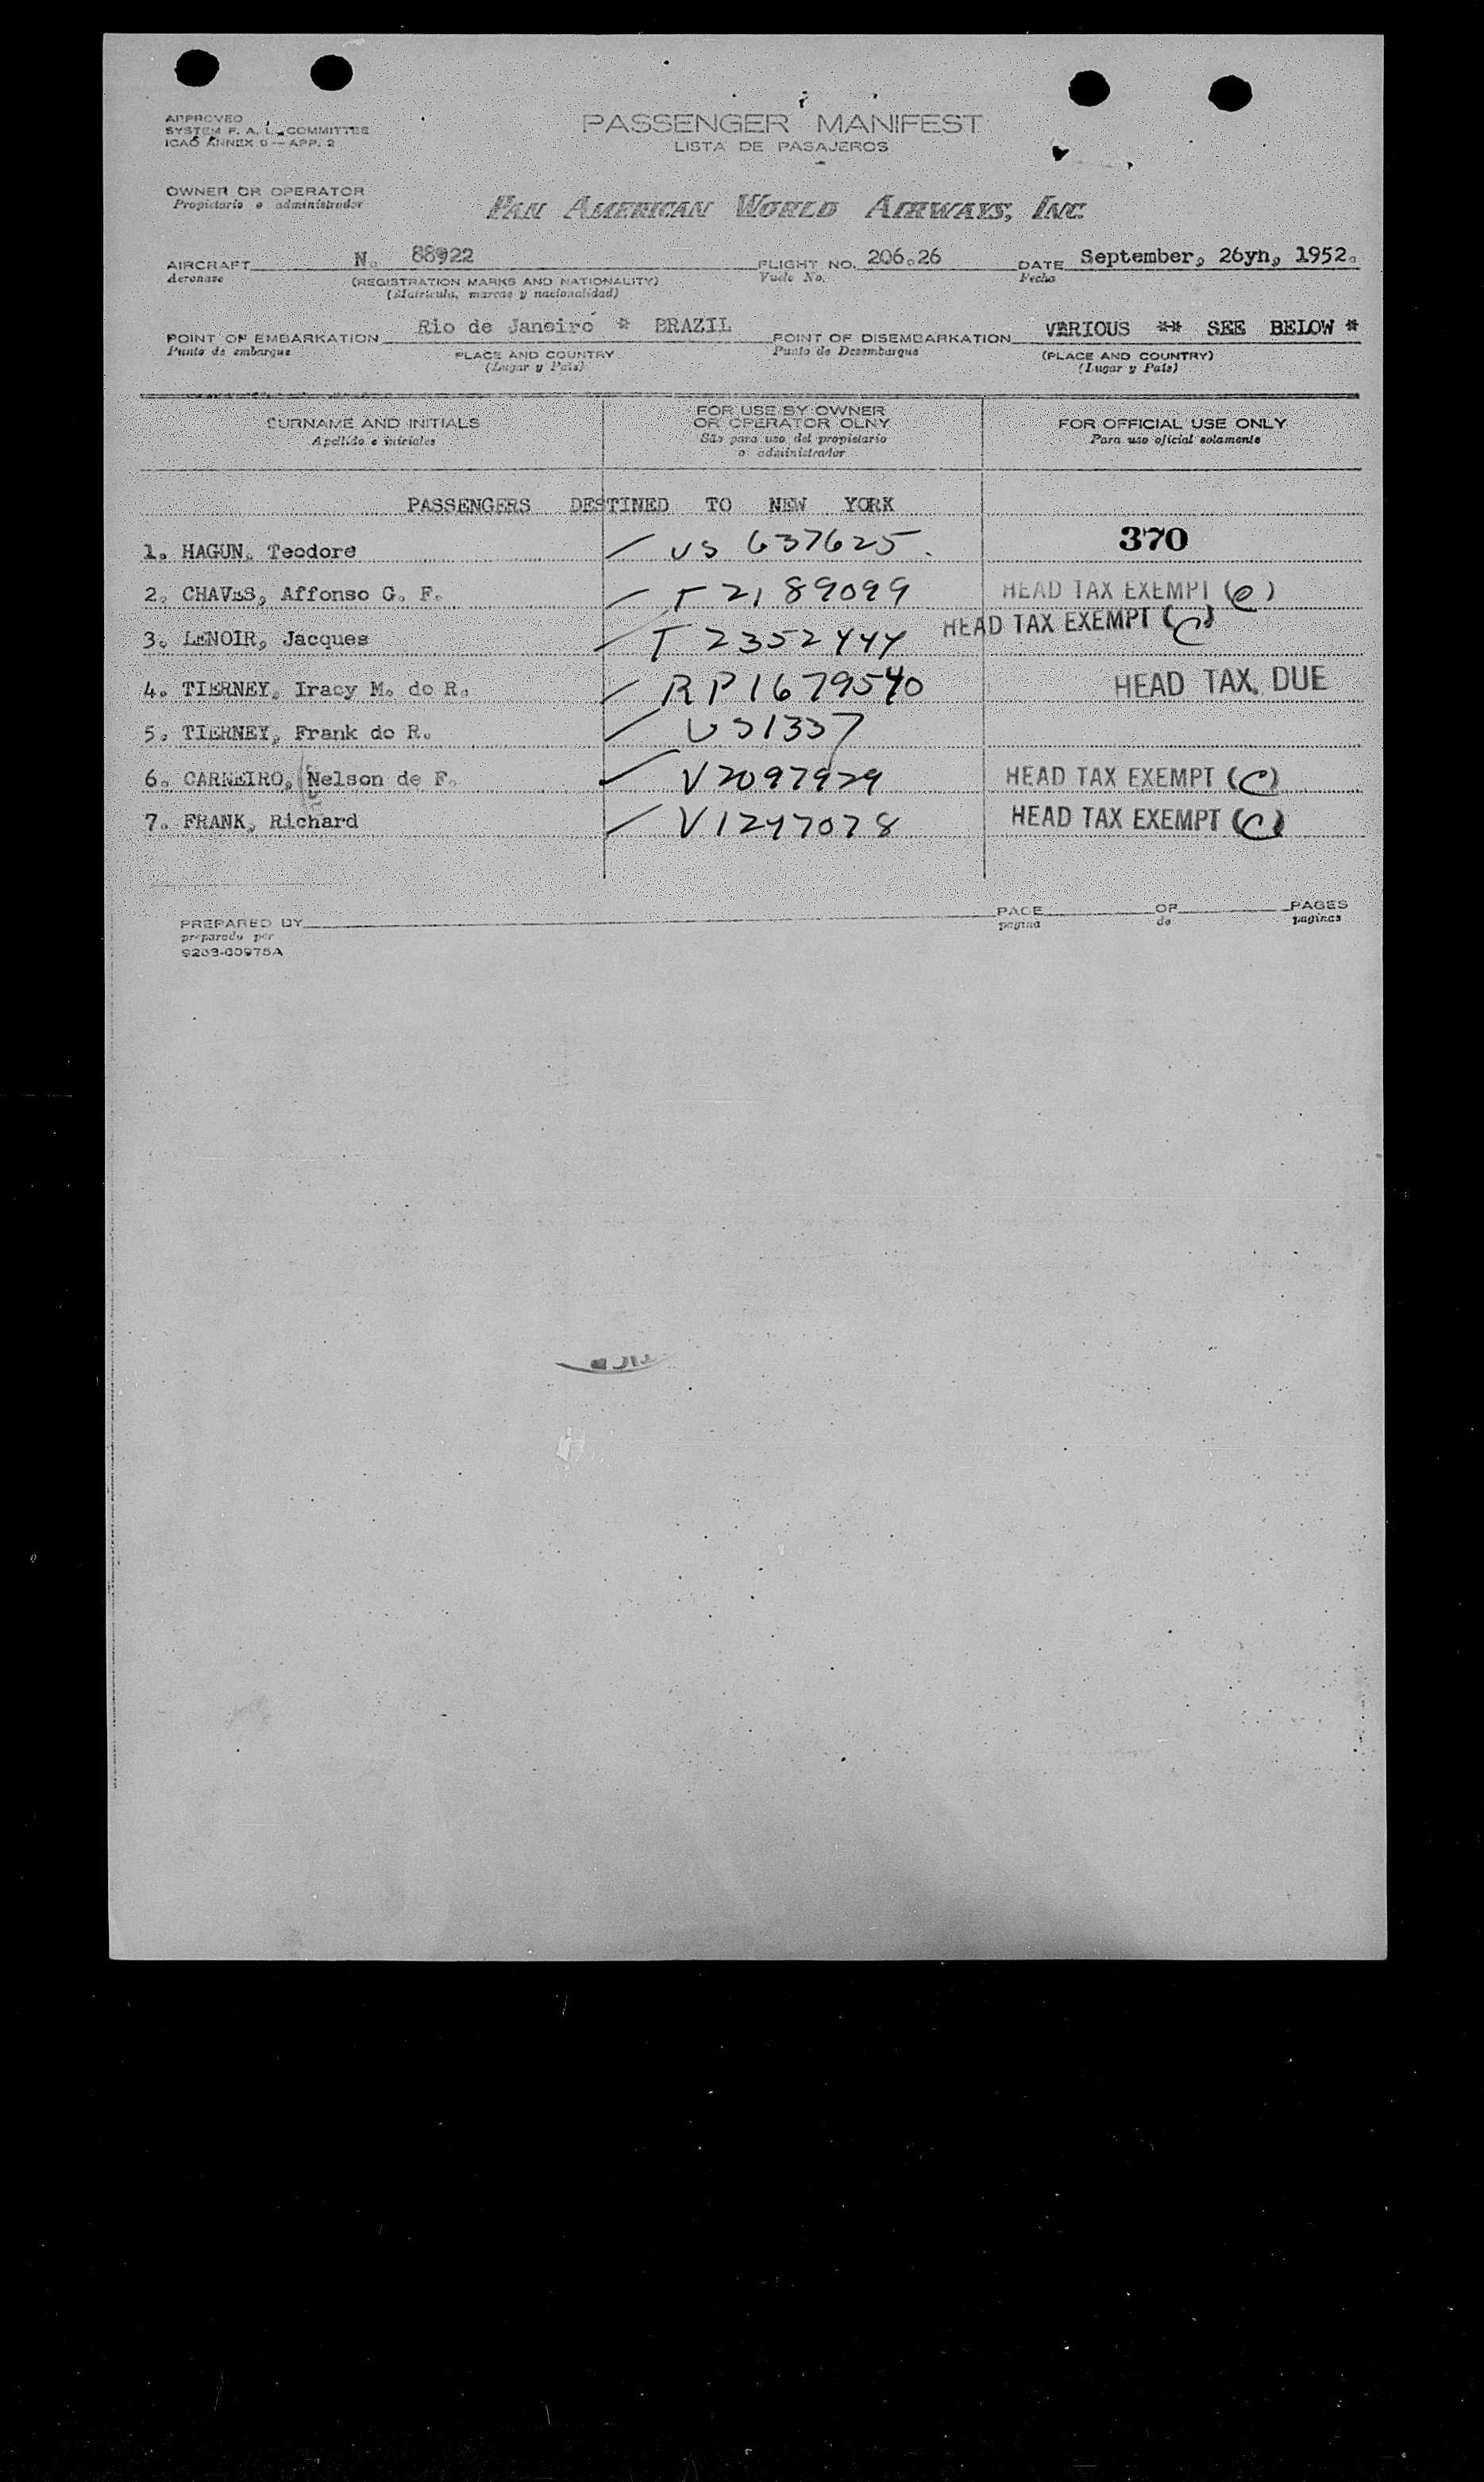 APPROVED
SYSTEM F. A. L. COMMITTEE
ICAO ANNEX 9 — APP. 2
PASSENGER MANIFEST
LISTA DE PASAJEROS
OWNER OR OPERATOR
Propietario o administrador
PAN AMERICAN WORLD AIRWAYS, INC.
AIRCRAFT N. 88922 FLIGHT NO. 206.26 DATE September, 26yn, 1952.
Aeronave (REGISTRATION MARKS AND NATIONALITY) Vuelo No. Fecha
(Matricula, marcas y nacionalidad)
POINT OF EMBARKATION Rio de Janeiro * BRAZIL POINT OF DISEMBARKATION VERIOUS ** SEE BELOW *
Punto de embarque PLACE AND COUNTRY Punto de Desembarque (PLACE AND COUNTRY)
(Lugar y País) (Lugar y País)
SURNAME AND INITIALS
Apellido e iniciales
FOR USE BY OWNER
OR OPERATOR OLNY
São para uso del propietario
o administrador
FOR OFFICIAL USE ONLY
Para uso oficial solamente
PASSENGERS DESTINED TO NEW YORK
1. HAGUN, Teodore US 637625. 370
2. CHAVES, Affonso G. F. T 2189099 HEAD TAX EXEMPT (e)
3. LENOIR, Jacques T 2352444 HEAD TAX EXEMPT (C)
4. TIERNEY, Iracy M. do R. RP1679540 HEAD TAX DUE
5. TIERNEY, Frank do R. US1337
6. CARNEIRO, Nelson de F. V2097929 HEAD TAX EXEMPT (C)
7. FRANK, Richard V1247078 HEAD TAX EXEMPT (C)
PREPARED BY PAGE OF PAGES
preparado por pagina de paginas
9263-00975A